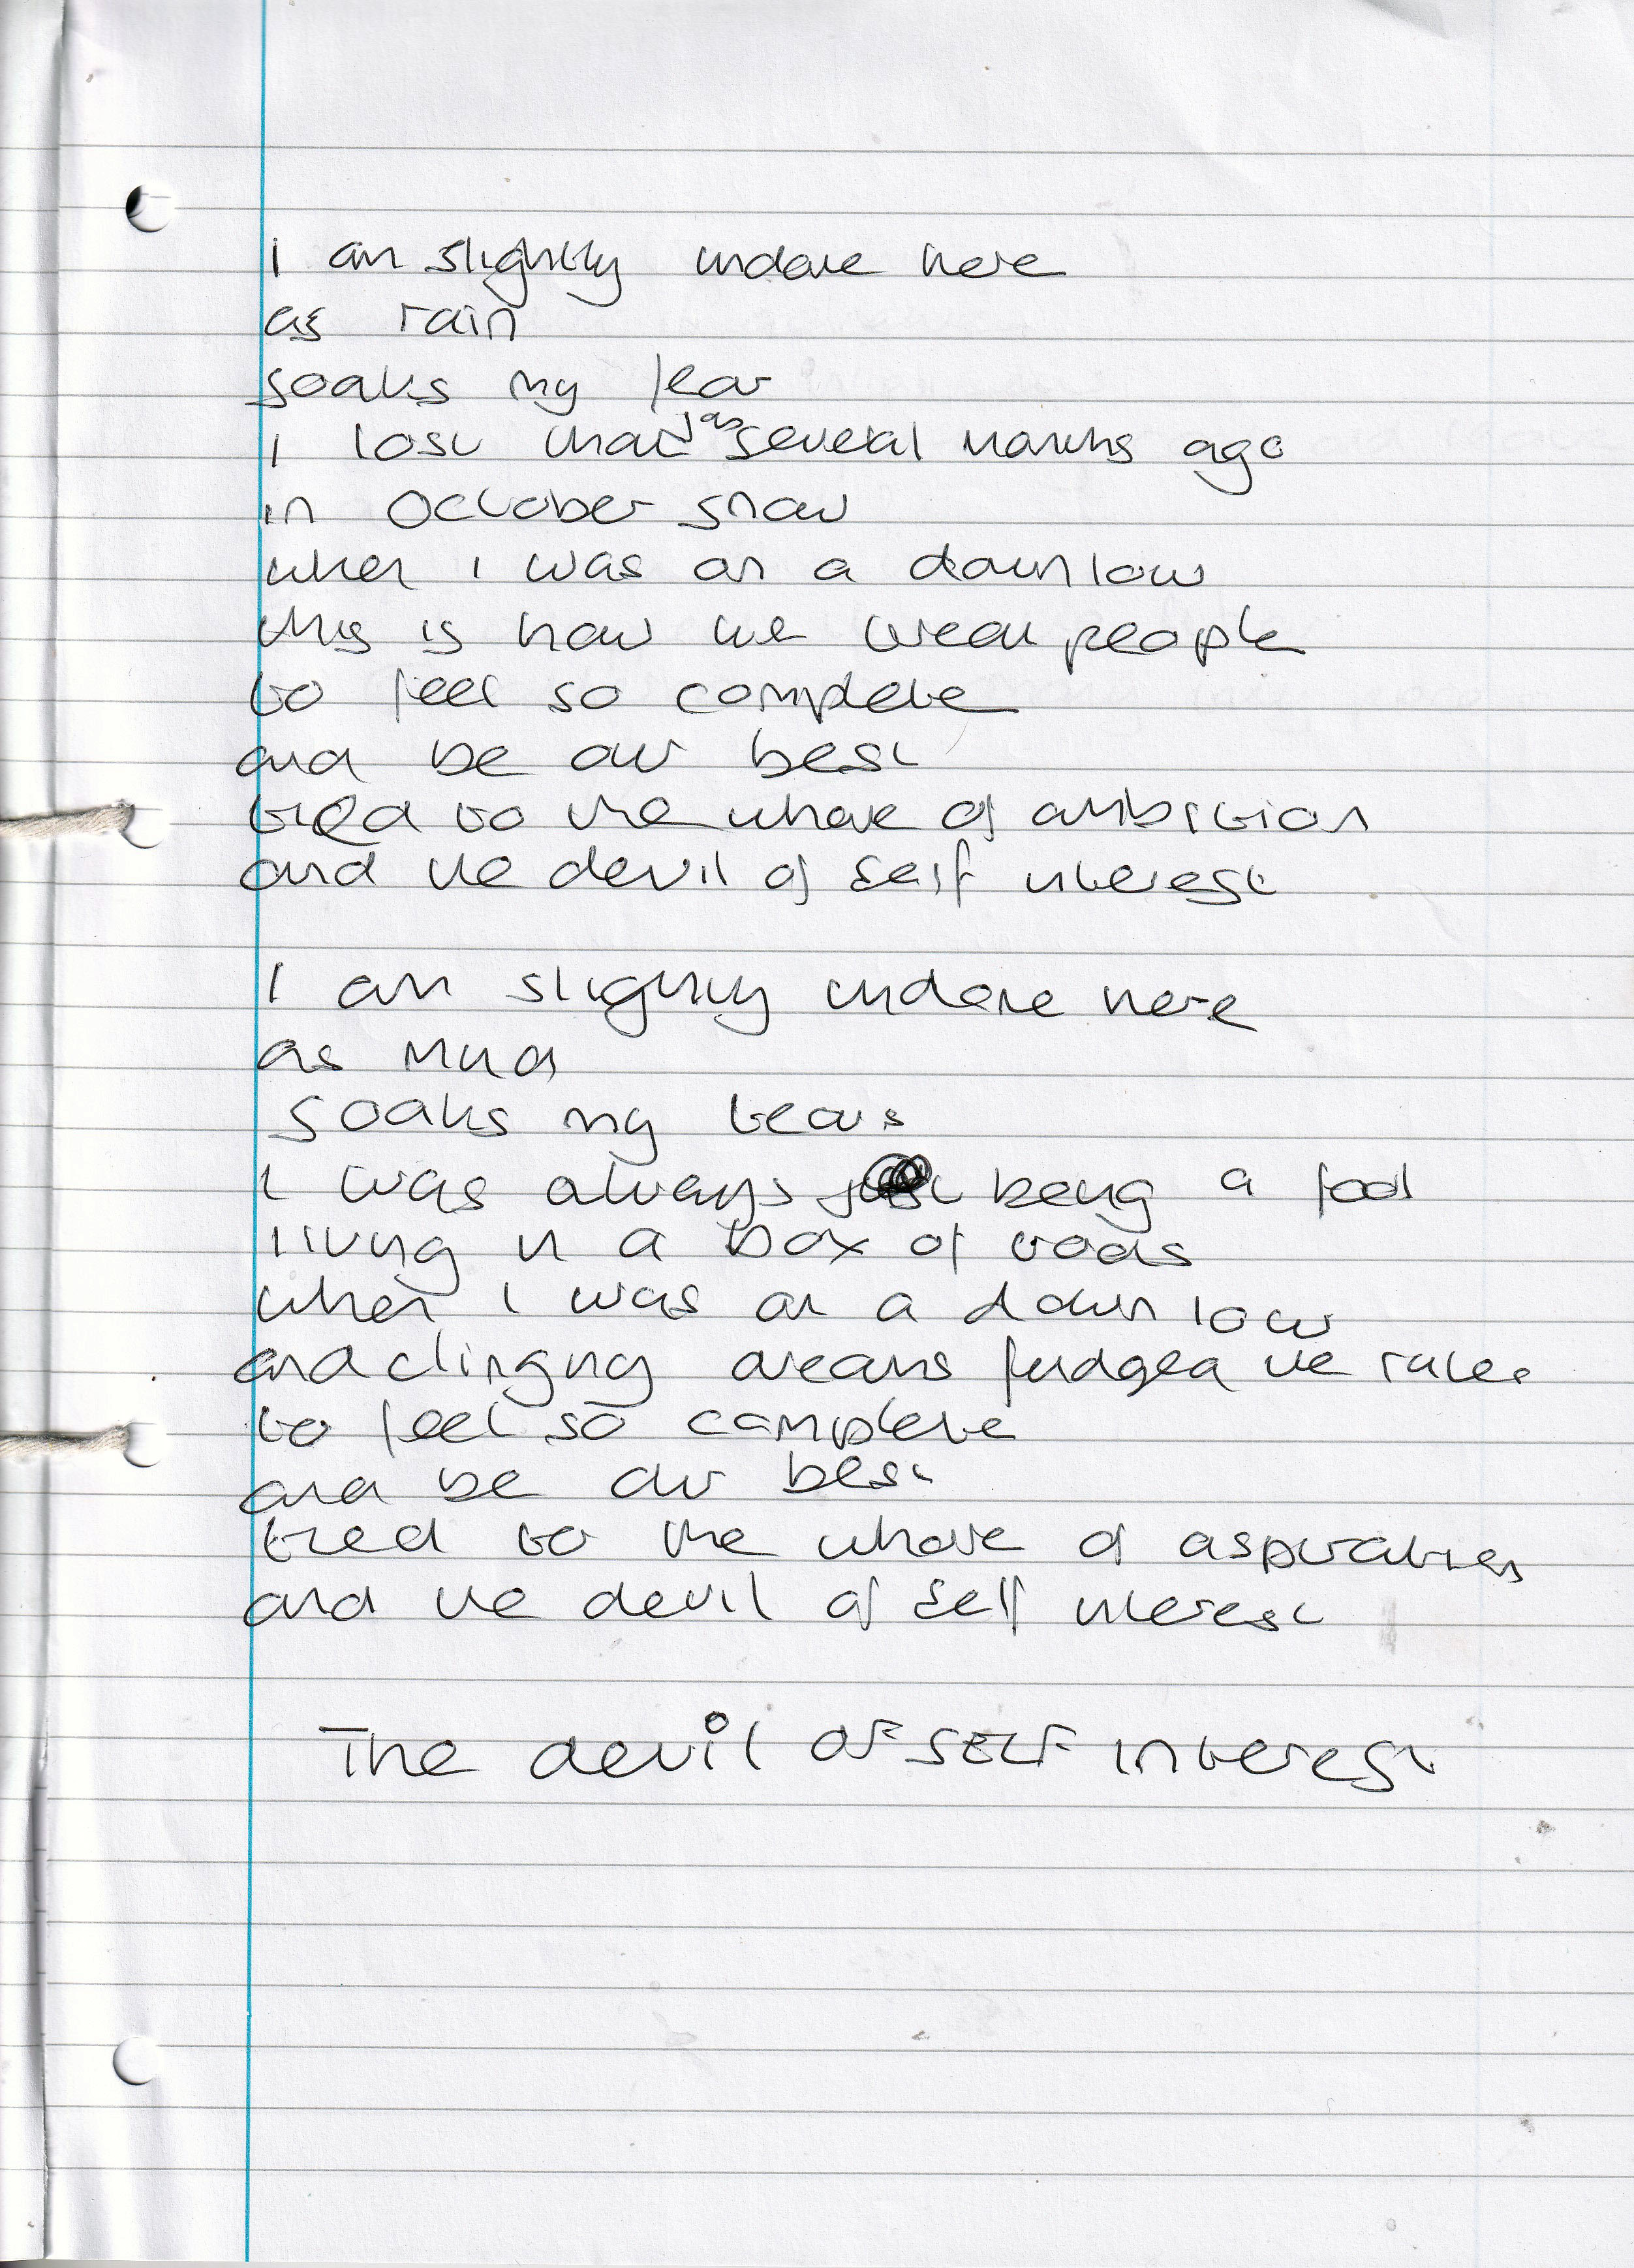 I am slightly undone here
as rain
soaks my fear
I lost that several months ago
in October snow
when I was on a down low
this is how we treat people
to feel so complete
and be our best
tied to the whore of ambition
and the devil of self interest
I am slightly undone here
as mud
soaks my tears
I was always just being a fool
living in a box of tools
when I was on a down low
and clinging dreams fudged the rules
to feel so complete
and be our best
tied to the whore of aspiration
and the devil of self interest
The devil OF SELF interest